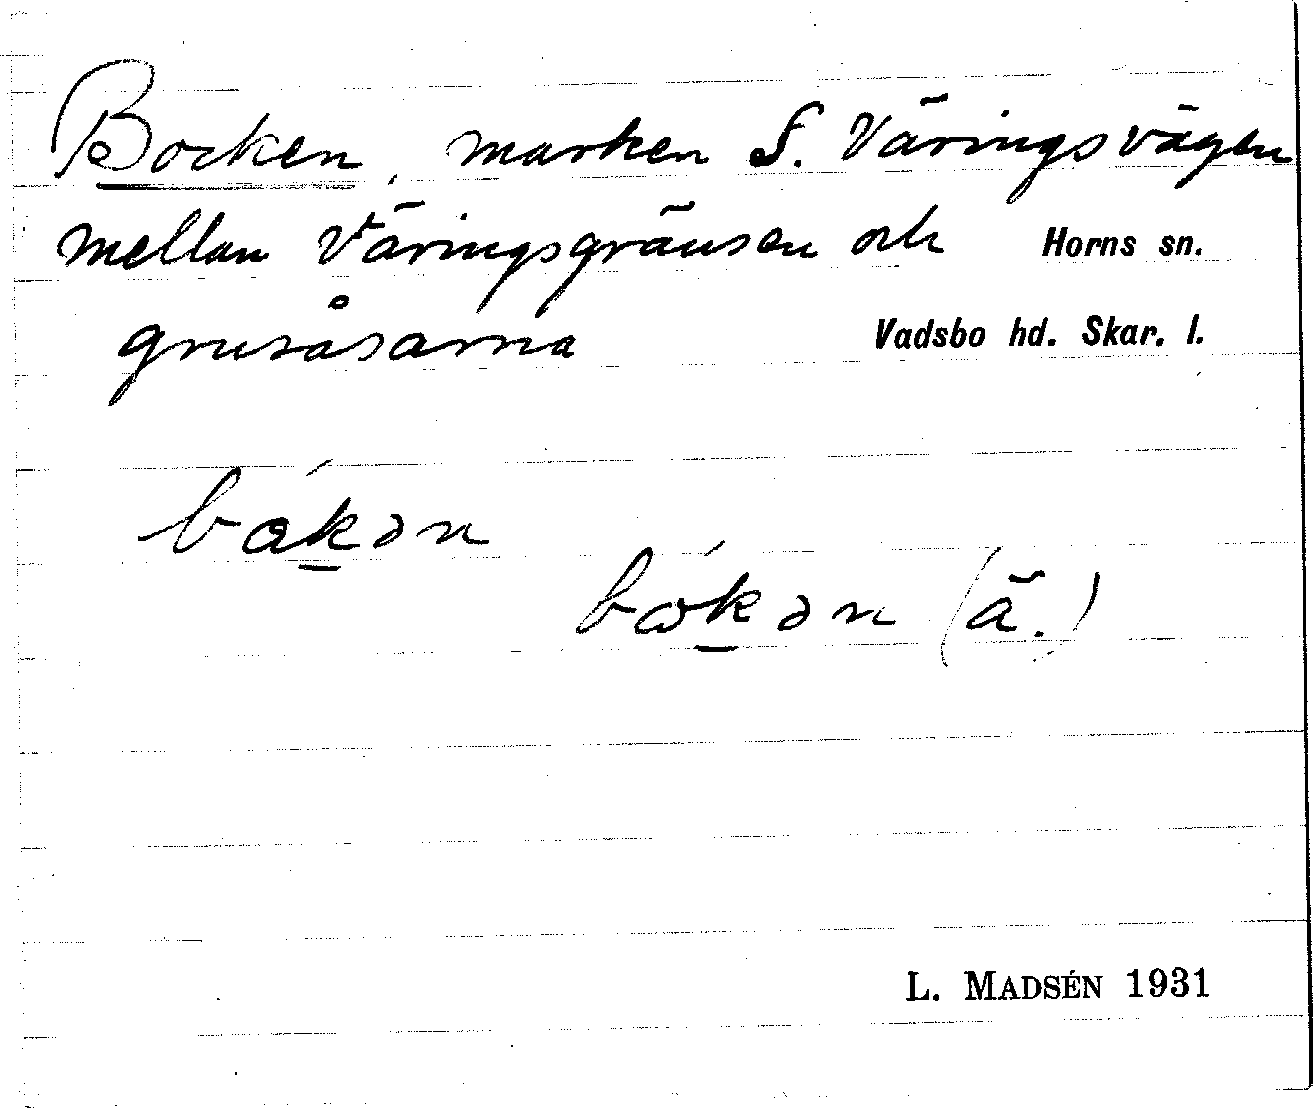 Bocken, marken S. Väringsvägen
mellan Väringsgränsen och
Horns sn.
grusåsarna
Vadsbo hd. Skar. l.
bákən
bωkən (ä.)
L. MADSÉN 1931